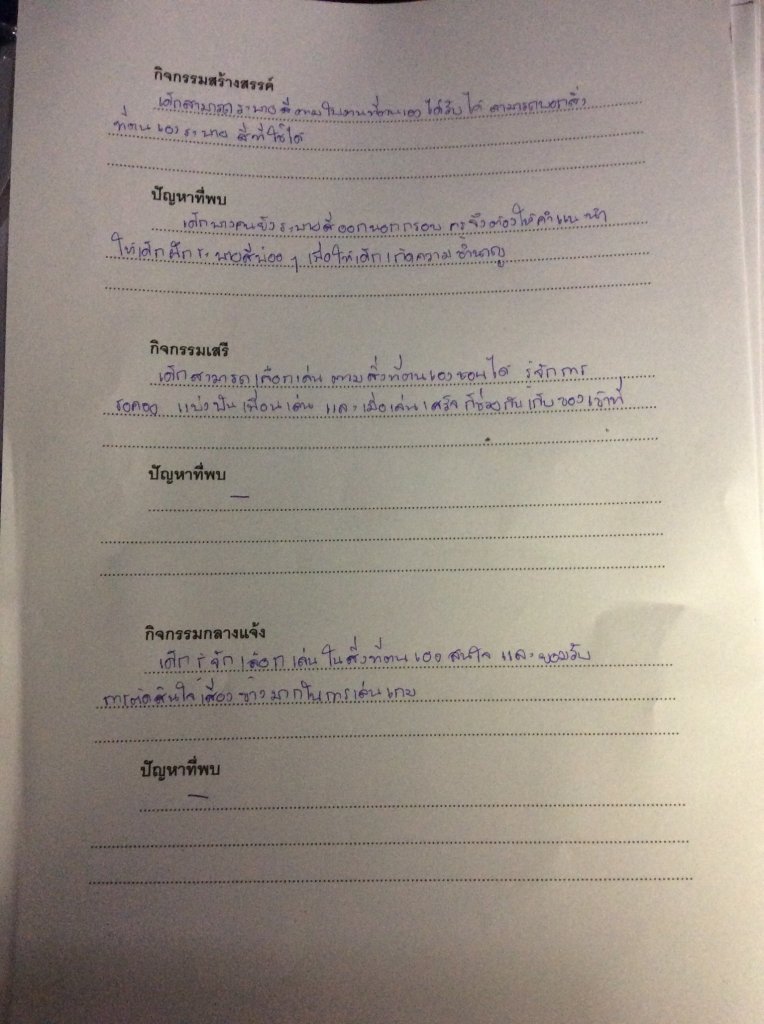 กิจกรรมสร้างสรรค์
เด็กสามารถระบายสีตามใบงานที่ตนเองได้รับได้ สามารถบอกสิ่ง
ที่ตนเองระบาย สีที่ใช้ได้
ปัญหาที่พบ
เด็กบางคนยังระบายสีออกนอกกรอบ ครูจึงต้องให้คำแนะนำ
ให้เด็กฝึกระบายสีบ่อย ๆ เพื่อให้เด็กเกิดความชำนาญ
กิจกรรมเสรี
เด็กสามารถเลือกเล่นตามสิ่งที่ตนเองชอบได้ รู้จักการ
รอคอย แบ่งปันเพื่อนเล่น และเมื่อเล่นเสร็จก็ช่วยกันเก็บของเข้าที่
ปัญหาที่พบ
–
กิจกรรมกลางแจ้ง
เด็กรู้จักเลือกเล่นในสิ่งที่ตนเองสนใจ และยอมรับ
การตัดสินใจเสียงข้างมากในการเล่นเกม
ปัญหาที่พบ
–